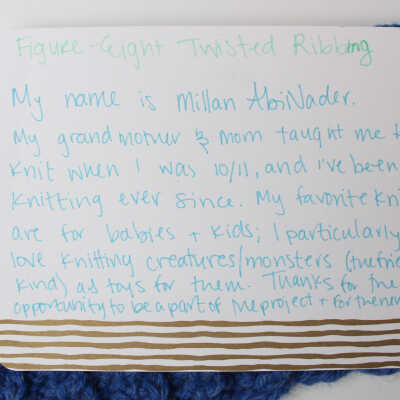 Figure-Eight Twisted Ribbing
My name is Millan AbiNader.
My grandmother & mom taught me t
knit when I was 10/11, and I've been
knitting ever since. My favorite kni
are for babies + kids; I particularly
love knitting creatures/monsters (the frie
kind) as toys for them. Thanks for the
opportunity to be a part of the project + for the